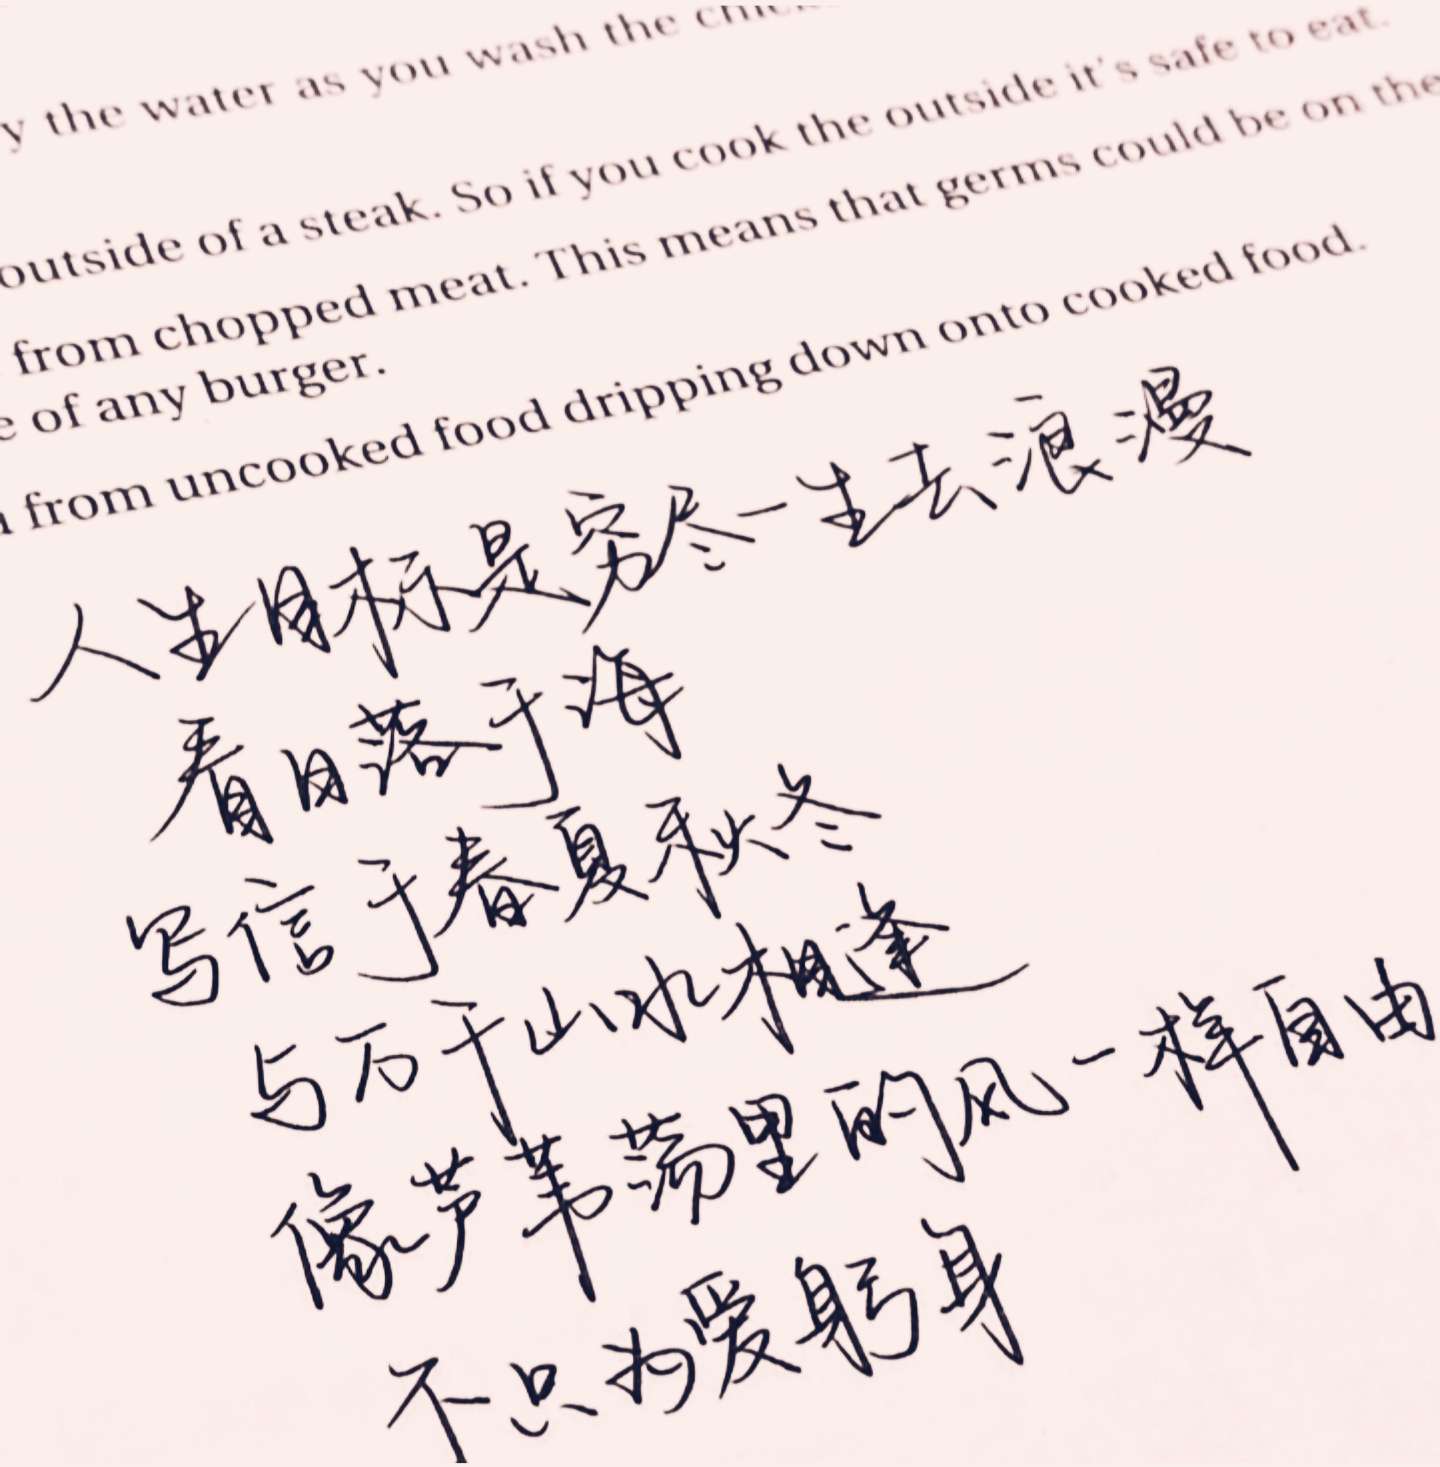 y the water as you wash the
outside of a steak. So if you cook the outside it's safe to eat.
from chopped meat. This means that germs could be on the
e of any burger.
from uncooked food dripping down onto cooked food.
人生目标是穷尽一生去浪漫
看日落于海
写信于春夏秋冬
与万千山水相逢
像芦苇荡里的风一样自由
不只为爱躬身